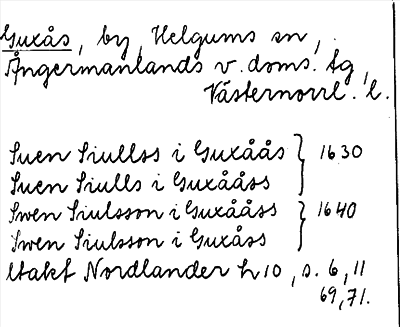 Guxås, by, Helgums sn,
Ångermanlands v. doms. tg,
Västernorrl. l.
Suen Siullss i Guxåås } 1630
Suen Siulls i Guxååss
Swen Siulsson i Guxååss } 1640
Swen Siulsson i Guxåss
Utakt Nordlander h 10, s. 6, 11
69, 71.